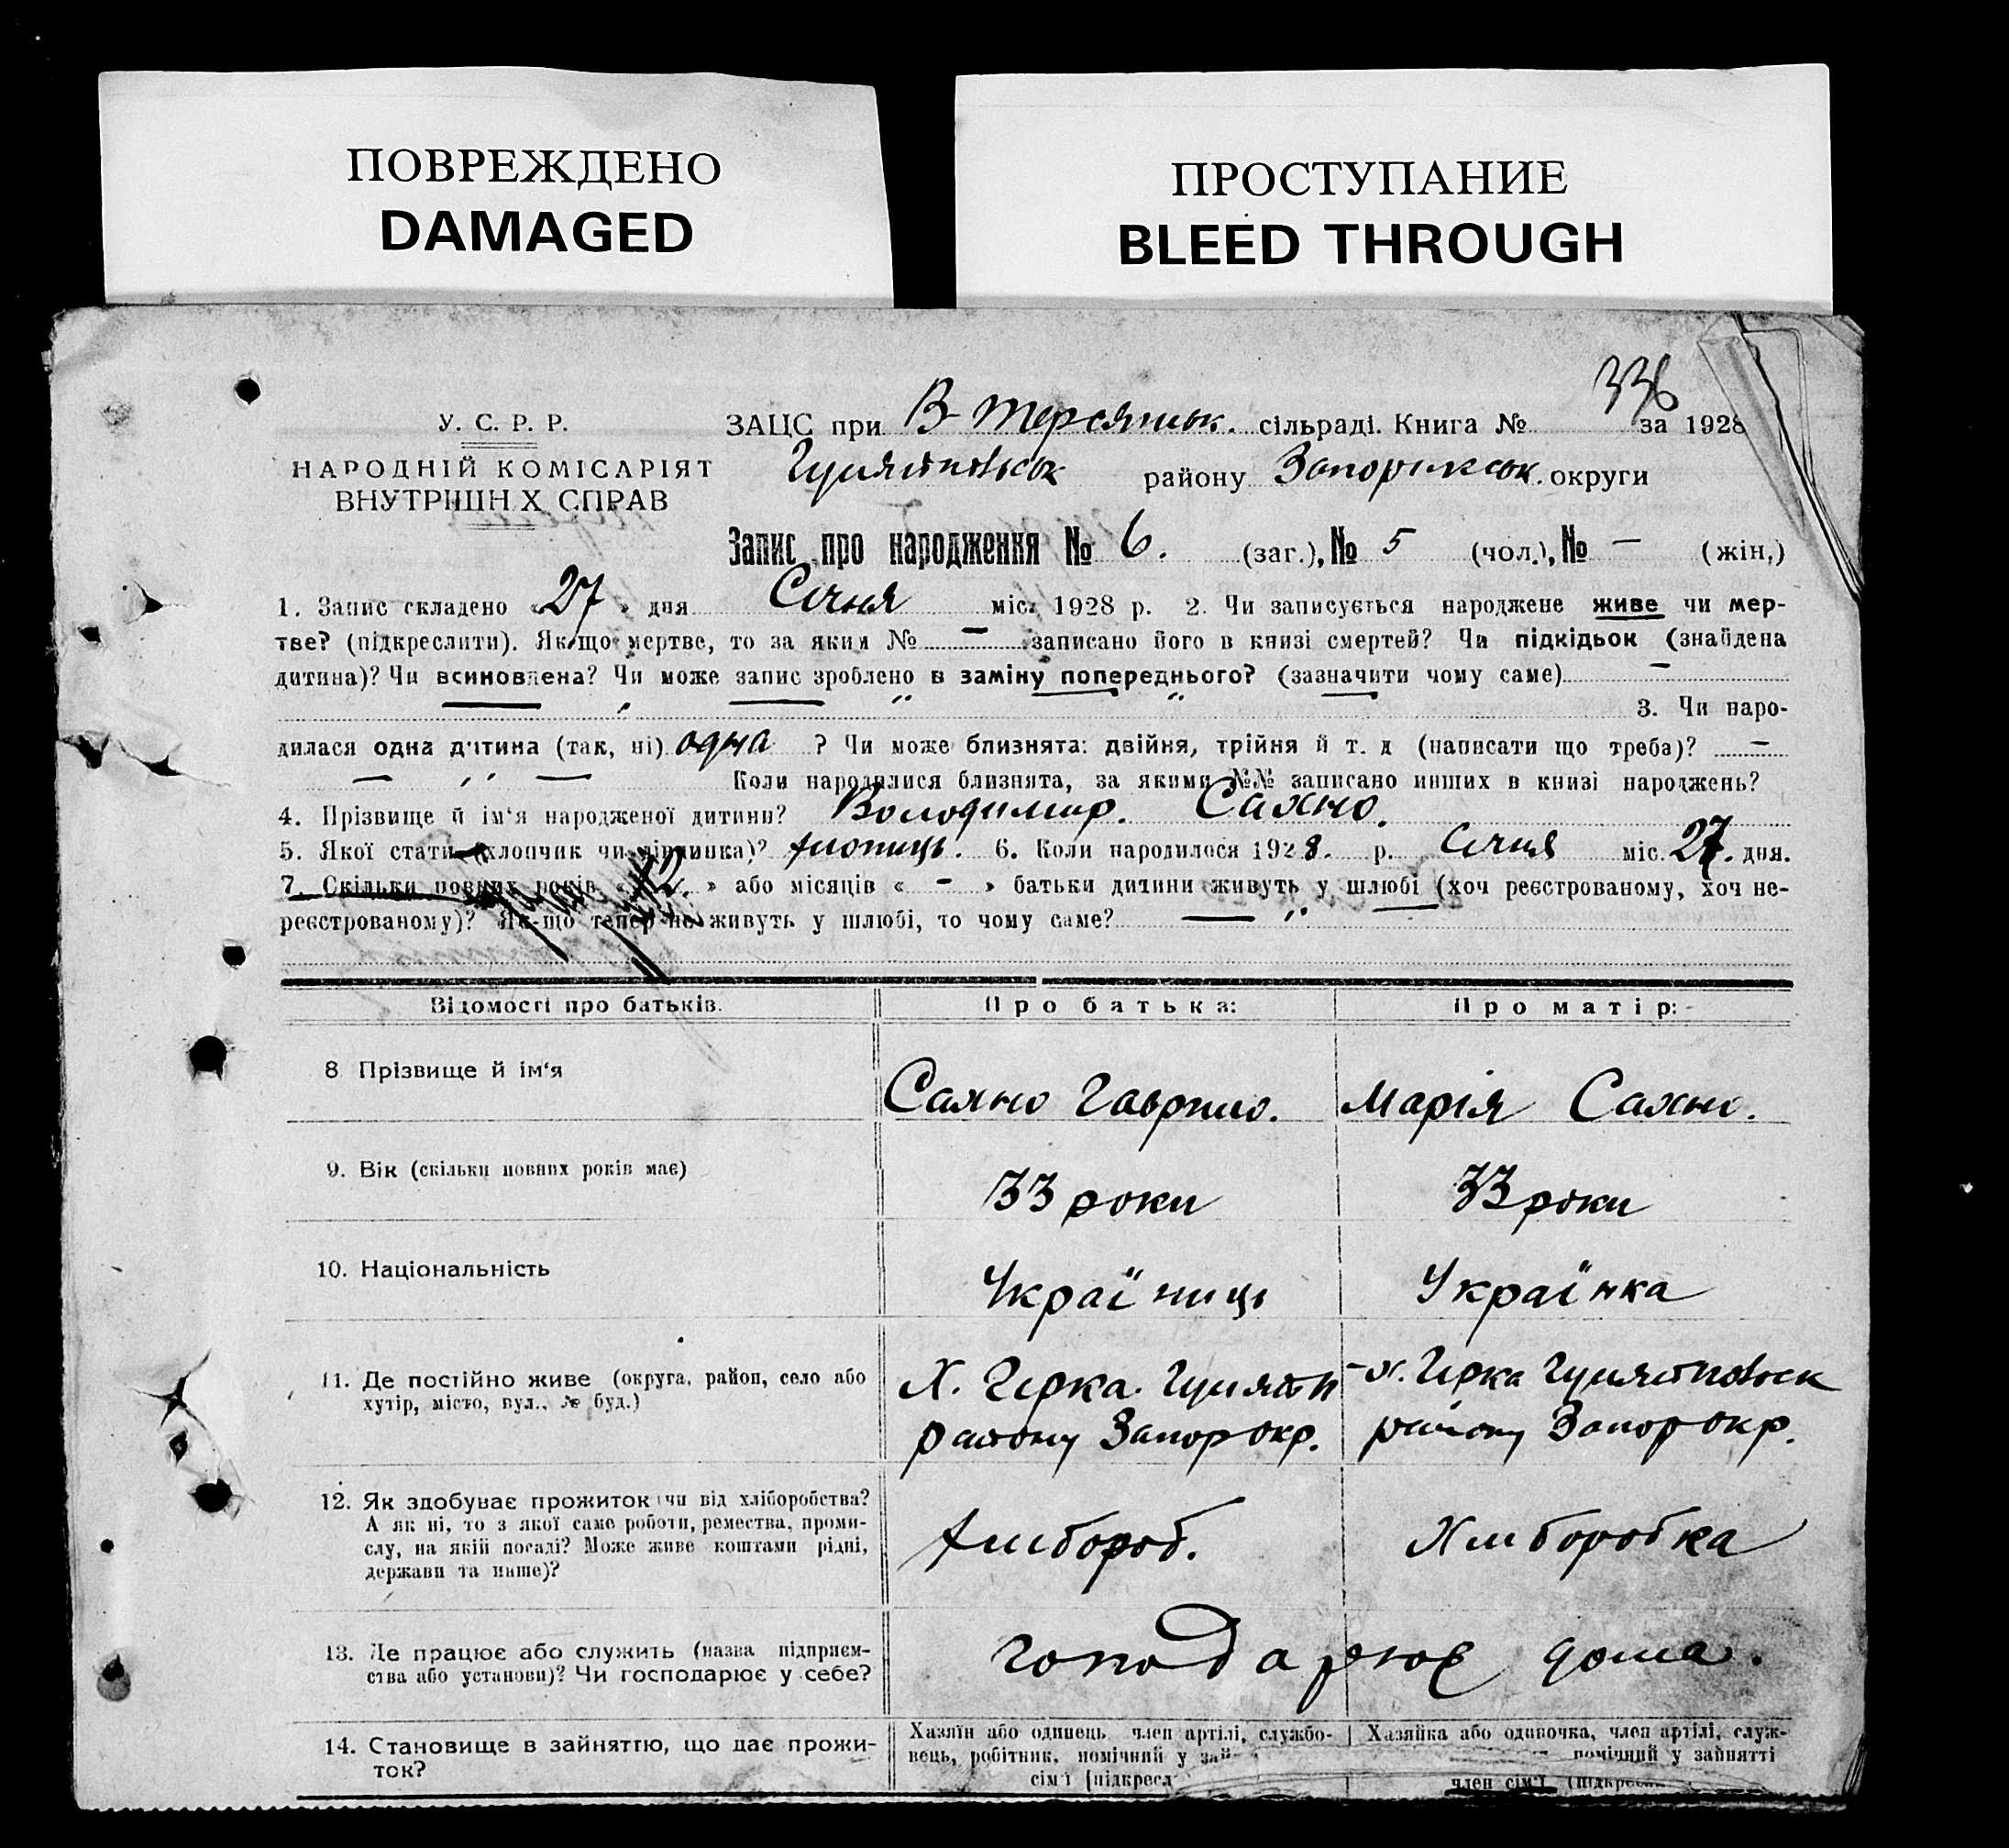 ПОВРЕЖДЕНО
DAMAGED
ПРОСТУПАНИЕ
BLEED THROUGH
336
У. С. Р. Р.
НАРОДНІЙ КОМІСАРІЯТ
ВНУТРІШН Х СПРАВ
ЗАЦС при В-Терсянськ. сільраді. Книга № за 1928
Гуляйпольськ району Запоріжськ. округи
Запис про народження № 6. (заг.), № 5 (чол.), № — (жін.)
1. Запис складено «27» дня Січня міс. 1928 р. 2. Чи записується народжене живе чи мер-
тве? (підкреслити). Як-що мертве, то за яким № — записано його в книзі смертей? Чи підкідьок (знайдена
дитина)? Чи всиновлена? Чи може запис зроблено в заміну попереднього? (зазначити чому саме) —
3. Чи наро-
дилася одна дитина (так, ні) одна ? Чи може близнята: двійня, трійня й т. д (написати що треба)? —
— ,, — Коли народилися близнята, за якими №№ записано инших в книзі народжень?
4. Прізвище й ім'я народженої дитини? Володимир. Сахно.
5. Якої стати (хлопчик чи дівчинка)? хлопиць. 6. Коли народилося 1928. р. Січня міс. 27. дня.
7. Скільки повних років «12» або місяців « - » батьки дитини живуть у шлюбі (хоч реєстрованому, хоч не-
реєстрованому)? Як-що тепер не живуть у шлюбі, то чому саме? — ,,
Відомості про батьків. Про батька: Про матір:
8 Прізвище й ім'я Сахно Гаврило. Марія Сахно.
9. Вік (скільки повних років має) 33 роки 33 роки
10. Національність Україниць Українка
11. Де постійно живе (округа, район, село або
хутір, місто, вул., № буд.)
Х. Гірка. Гуляйп
району Запор окр.
х. Гірка Гуляйпольськ
району Запор окр.
12. Як здобуває прожиток чи від хліборобства?
А як ні, то з якої саме роботи, ремества, проми-
слу, на якій посаді? Може живе коштами рідні,
держави та инше)?
хлибороб. Хлиборобка
13. Де працює або служить (назва підприєм-
ства або установи)? Чи господарює у себе?
гоподарює дома.
14. Становище в зайняттю, що дає прожи-
ток?
Хазяїн або одинець, член артілі, службо-
вець, робітник, помічний у зай
сім'ї (підкресл
Хазяйка або одиночка, член артілі, служ-
помічний у зайнятті
член сім'ї (підкресл